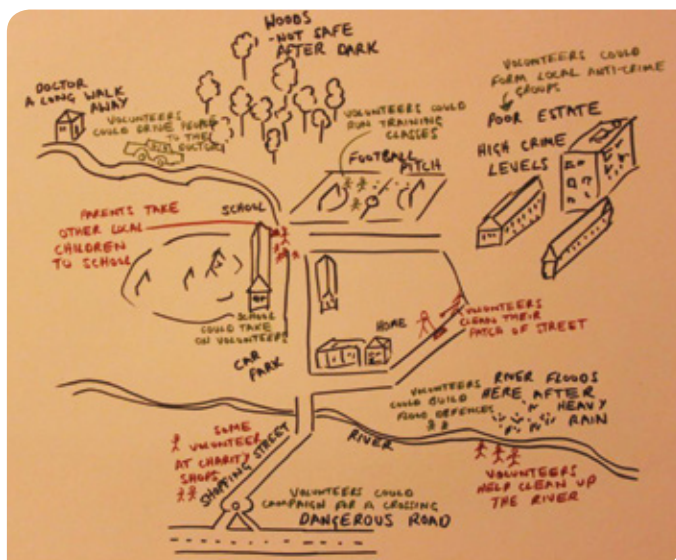 WOODS
-NOT SAFE
AFTER DARK
DOCTOR
A LONG WALK
AWAY
VOLUNTEERS
COULD DRIVE PEOPLE
TO THE
DOCTOR
VOLUNTEERS COULD
RUN TRAINING
CLASSES
FOOTBALL
PITCH
VOLUNTEERS COULD
FORM LOCAL ANTI-CRIME
GROUPS
POOR ESTATE
HIGH CRIME
LEVELS
PARENTS TAKE
OTHER LOCAL
CHILDREN
TO SCHOOL
SCHOOL
SCHOOL
COULD TAKE
ON VOLUNTEERS
CAR
PARK
HOME
VOLUNTEERS
CLEAN THEIR
PATCH OF STREET
VOLUNTEERS
COULD BUILD
FLOOD DEFENCES
RIVER FLOODS
HERE AFTER
HEAVY
RAIN
RIVER
SOME
VOLUNTEER
AT CHARITY
SHOPS
SHOPPING STREET
VOLUNTEERS
HELP CLEAN UP
THE RIVER
VOLUNTEERS COULD
CAMPAIGN FOR A CROSSING
DANGEROUS ROAD